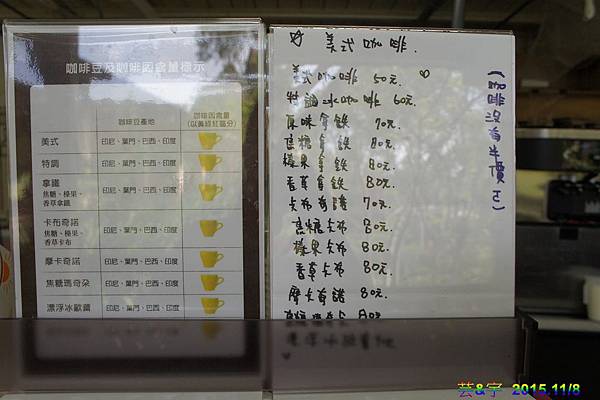 咖啡豆及咖啡因含量標示
咖啡豆產地
咖啡因含量
(以黃綠紅區分)
美式
印尼、葉門、巴西、印度
特調
印尼、葉門、巴西、印度
拿鐵
焦糖、榛果、
香草拿鐵
印尼、葉門、巴西、印度
卡布奇諾
焦糖、榛果、
香草卡布
印尼、葉門、巴西、印度
摩卡奇諾
印尼、葉門、巴西、印度
焦糖瑪奇朵
印尼、葉門、巴西、印度
漂浮冰歐蕾
印尼、葉門、巴西、印度
☆ 美式咖啡.
美式咖啡 50元.
特調冰咖啡 60元.
原味拿鐵 70元.
焦糖拿鐵 80元.
榛果拿鐵 80元.
香草拿鐵 80元.
卡布奇諾 70元.
焦糖卡布 80元.
榛果卡布 80元.
香草卡布 80元.
摩卡奇諾 80元.
(咖啡沒有半價
芸&宇 2015.11/8